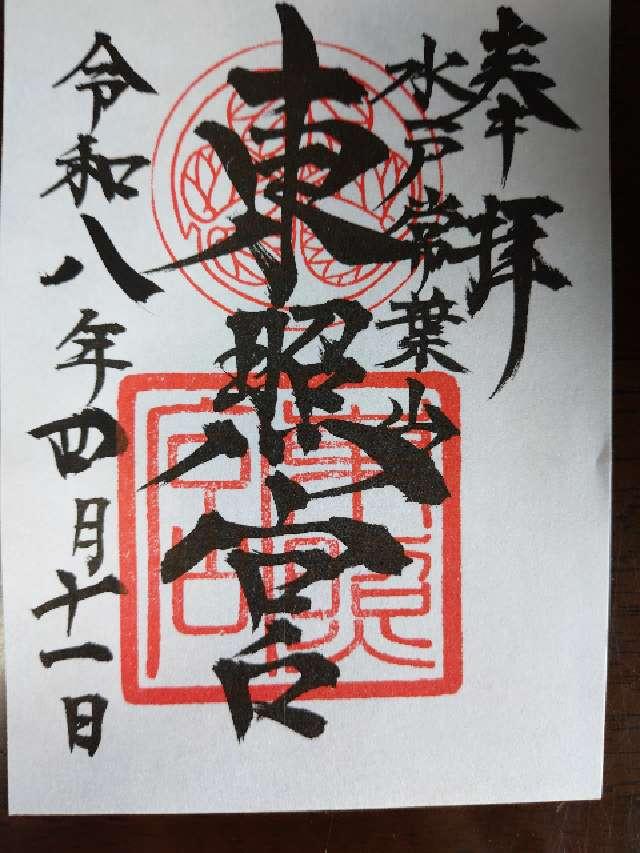 奉拝
水戸常葉山
東照宮
令和八年四月十一日